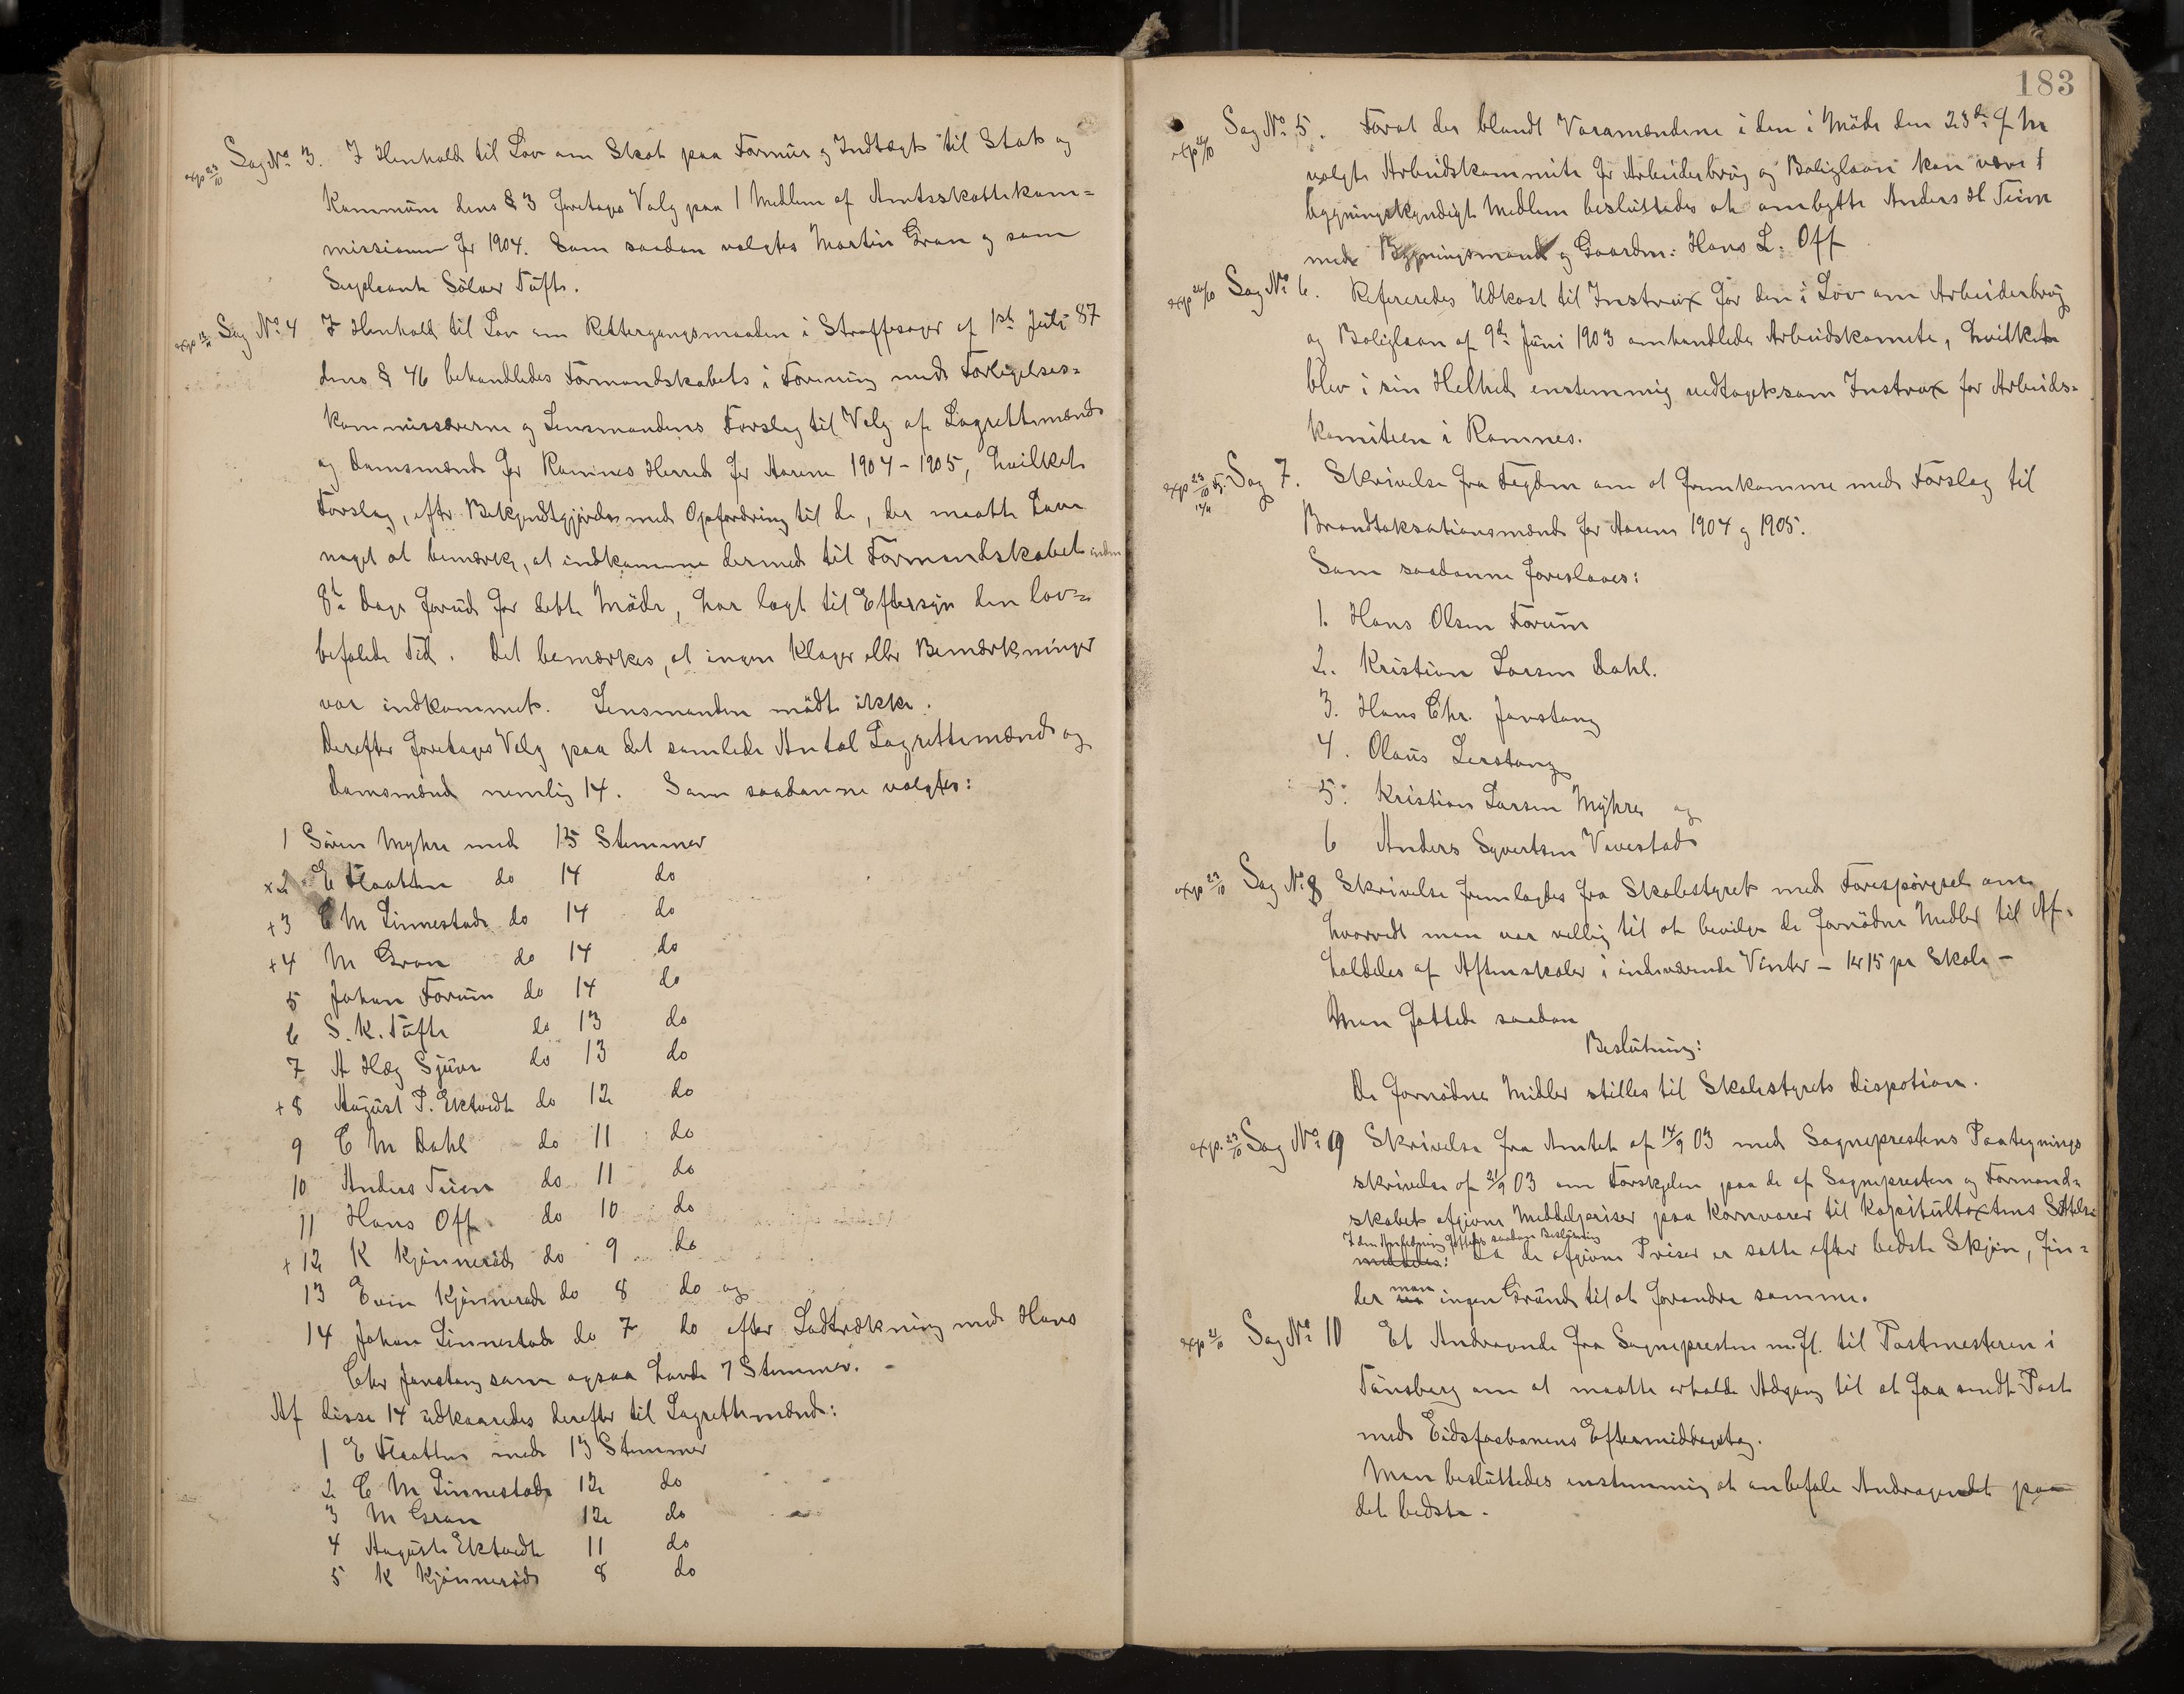 exp 23/10 Sag No 3. I Henhold til Lov om Skat paa Formue og Indtægt til Stat og
Kommune dens § 3 foretages Valg paa 1 Medlem af Amtsskattekom=
missionen for 1904. Som saadan valgtes Martin Gran og som
Supleant Sölver Tufte.
exp 12/11 Sag No 4 I Henhold til Lov om Rettergangsmaaden i Straffesager af 1ste Juli 87
dens § 46 behandledes Formandskabets i Forening med Forligelses=
kommissærerne og Lensmandens Forslag til Valg af Lagrettemænd
og Domsmænd for Ramnes Herred for Aarene 1904-1905, hvilket
Forslag, efter Bekjendtgjörelse med Opfordring til de, der maatte have
noget at bemærke, at indkomme dermed til Formandskabet inden
8te Dage forud for dette Möde, har lagt til Eftersyn den lov=
befalede Tid. Det bemærkes, at ingen Klager eller Bemærkninger
var indkommet. Lensmanden mödte ikke.
Derefter foretages Valg paa det samlede Antal Lagrettemænd og
Domsmænd nemlig 14. Som saadanne valgtes:
1 Sören Myhre med 15 Stemmer
x2 E Flaatten do 14 do
+3 C M Linnestad do 14 do
+4 M Gran do 14 do
5 Johan Forum do 14 do
6 S. K. Tufte do 13 do
7 A Hæg Sjuve do 13 do
+8 August P. Ektvedt do 12 do
9 C M Dahl do 11 do
10 Anders Teien do 11 do
11 Hans Off do 10 do
+12 K Kjönneröd do 9 do
13 Even Kjönneröd do 8 do og
14 Johan Linnestad do 7 do efter Lodtrækning med Hans
Chr Javstang som ogsaa havde 7 Stemmer. -
Af disse 14 udkaaredes derefter til Lagrettemænd:
1 E Flaatten med 13 Stemmer
2 C M Linnestad 12 do
3 M Gran 12 do
4 August Ektvedt 11 do
5 K Kjönneröd 8 do
183
exp 26/10 Sag No 5. Forat der blandt Varamændene i den i Möde den 23de f M
valgte Arbeidskommite for Arbeiderbrug og Boliglaan kan være 1
bygningskyndigt Medlem besluttedes at ombytte Anders H Teien
med Bygningsmand og Gaardm: Hans L. Off
exp 26/10 Sag No 6. Refereredes Udkast til Instrux for den i Lov om Arbeiderbrug
og Boliglaan af 9de Juni 1903 omhandlede Arbeidskomite, hvilket
blev i sin Helhed enstemmig vedtaget som Instrux for Arbeids=
komiteen i Ramnes.
exp 23/10 Sag 7. Skrivelse fra Fogden om at fremkomme med Forslag til
12/11 Brandtaksationsmænd for Aarene 1904 og 1905.
Som saadanne foreslaaes:
1. Hans Olsen Forum
2. Kristian Larsen Dahl.
3. Hans Chr. Javstang
4. Olaus Lerstang
5. Kristian Larsen Myhre og
6 Anders Syvertsen Vivestad
exp 23/10 Sag No 8 Skrivelse fremlagdes fra Skolestyret med Forespörgsel om
hvorvidt man var villig til at bevilge de fornödne Midler til Af=
holdeles af Aftenskoler i indeværende Vinter - Kr 15 pr Skole -
Man fattede saadan
Beslutning:
De fornödne Midler stilles til Skolestyrets Dispotion.
exp. 23/10 Sag No 9 Skrivelse fra Amtet af 14/9 03 med Sogneprestens Paategnings
skrivelse af 21/9 03 om Forskjelen paa de af Sognepresten og Formand=
skabet afgivne Middelpriser paa Kornvarer til Kapitültaxtens Settelse
I den Anledning fattes saadan Beslutning
Da de afgivne Priser er satte efter bedste Skjön, fin=
der man ingen Grund til at forandre samme.
exp 21/10 Sag No 10 Et Andragende fra Sognepresten m.fl. til Postmesteren i
Tönsberg om at maatte erholde Adgang til at faa sendt Post
med Eidsfosbanens Eftermiddagstog.
Man besluttedes enstemmig at anbefale Andragendet paa
det bedste.